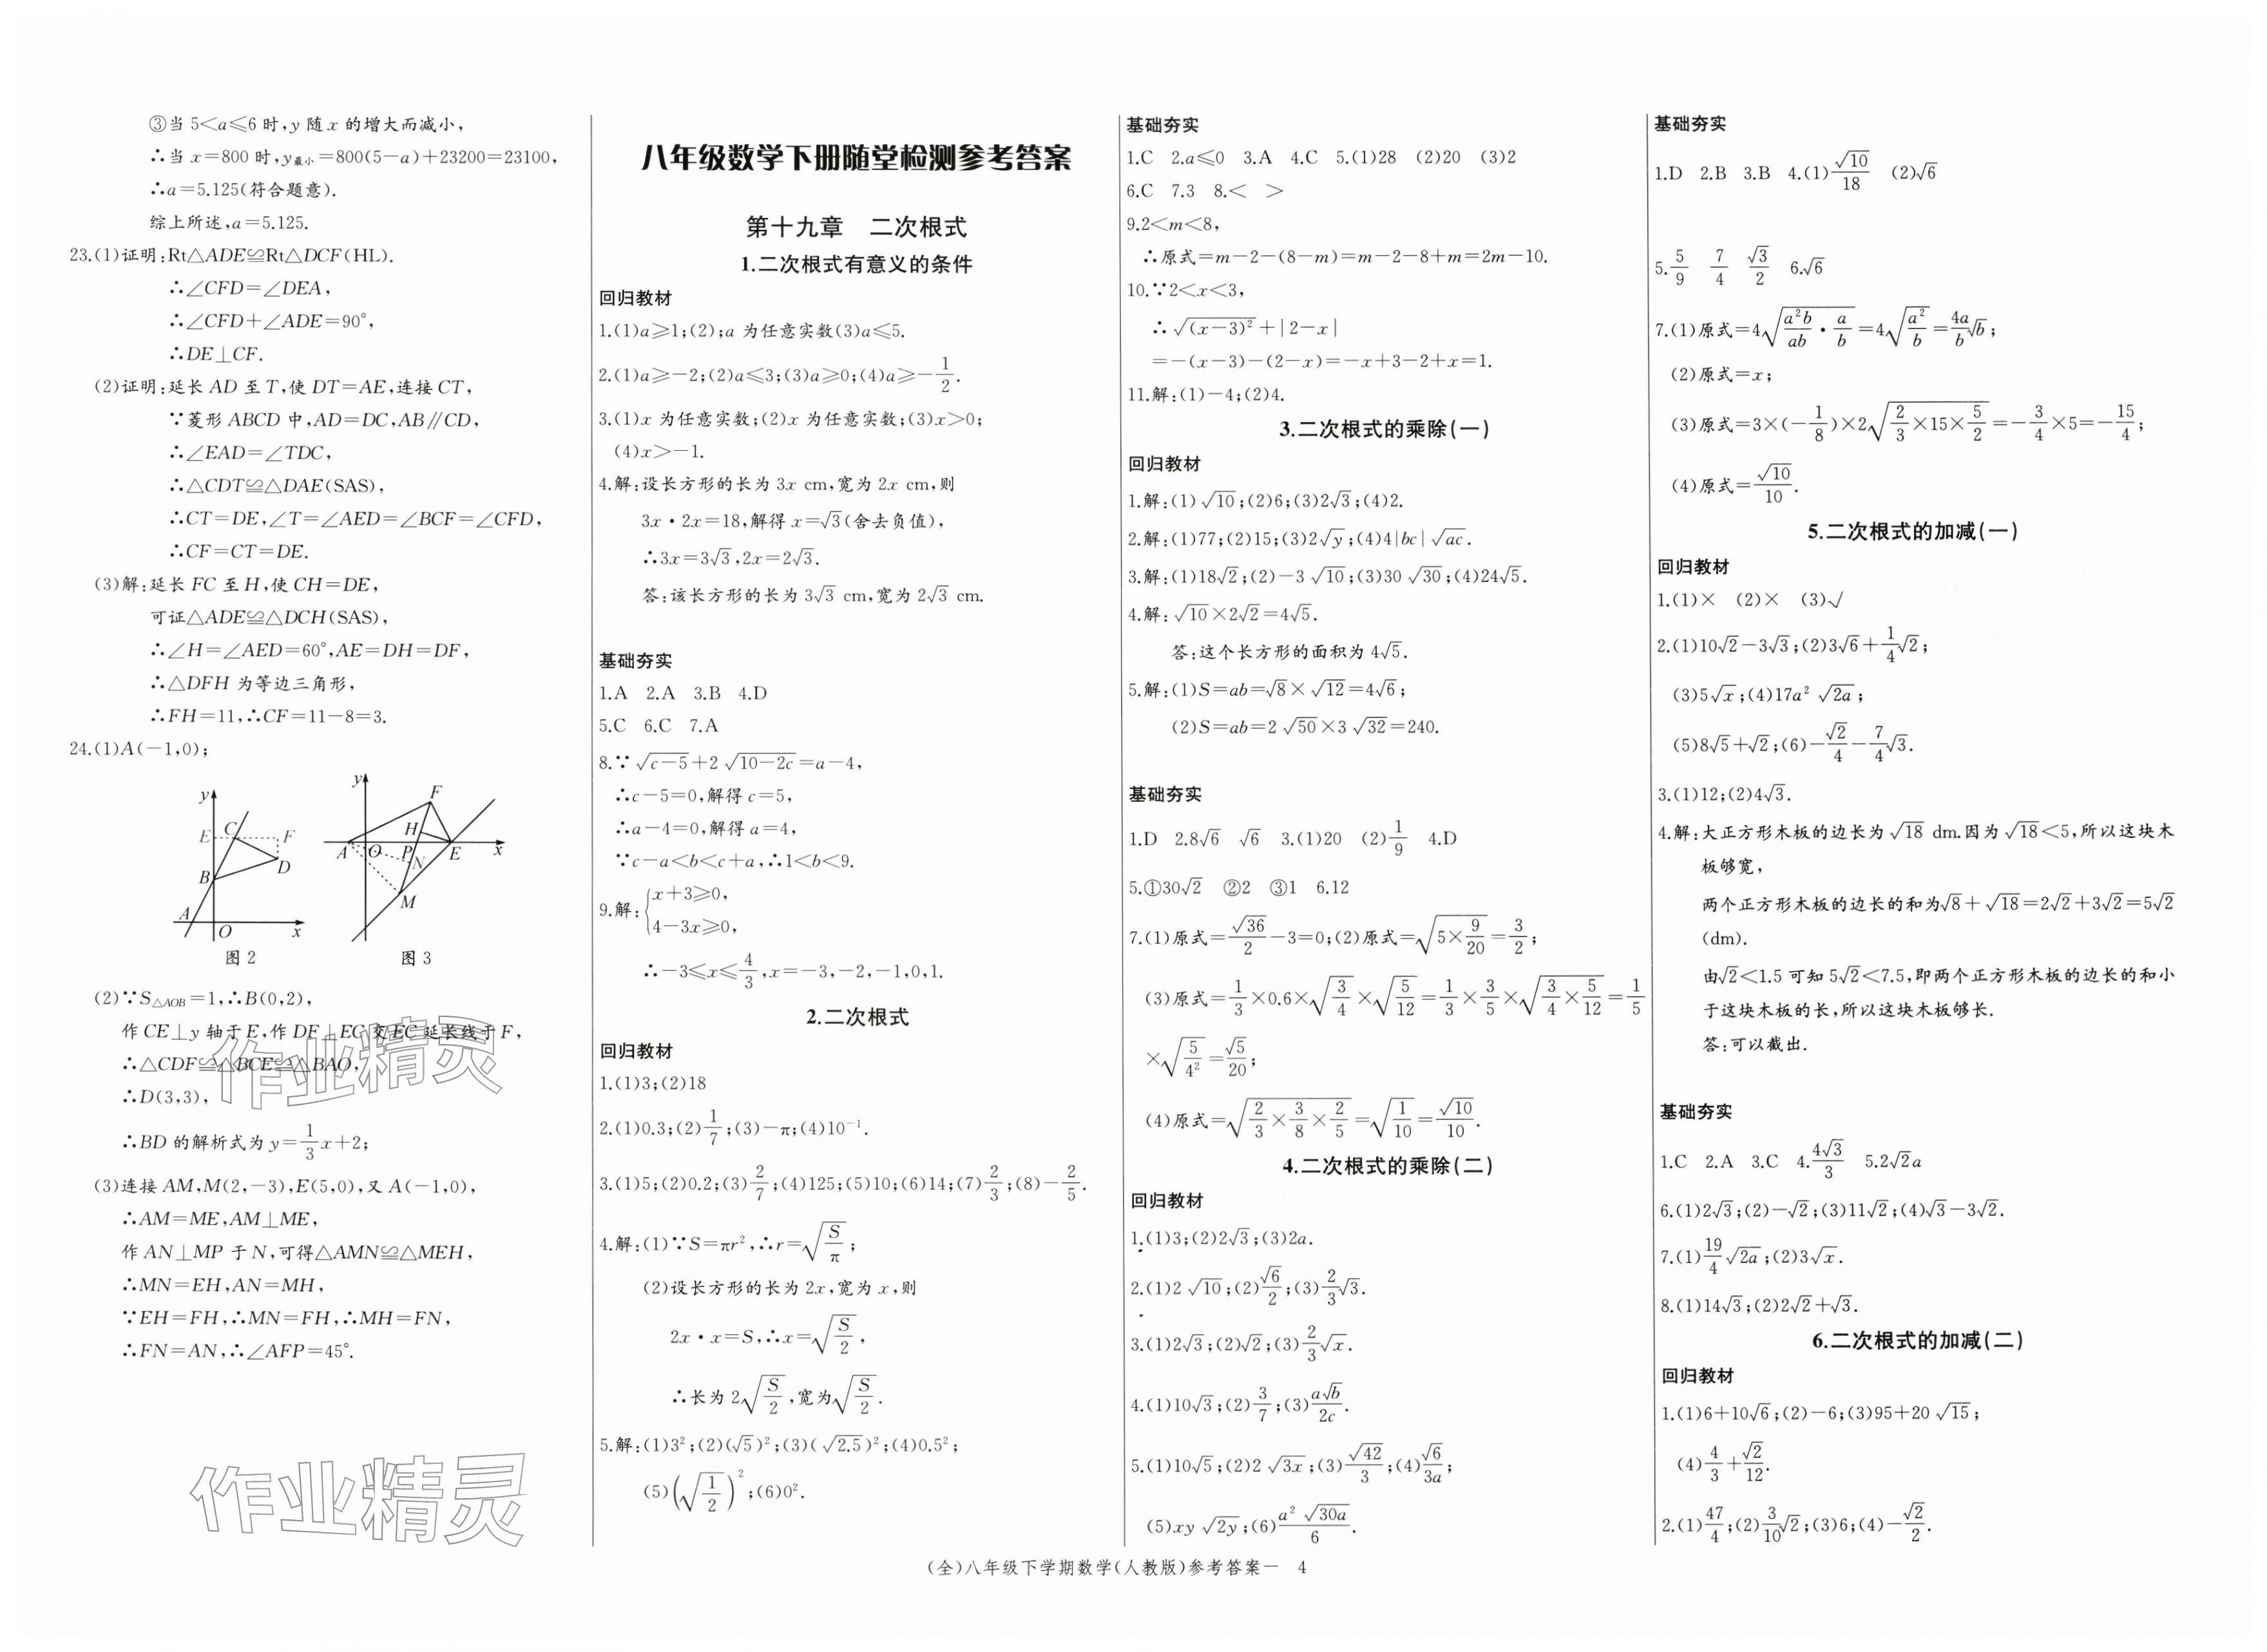 ③当 5<a≤6 时,y 随 x 的增大而减小,
∴当 x=800 时,y最小=800(5-a)+23200=23100,
∴a=5.125(符合题意).
综上所述,a=5.125.
23.(1)证明:Rt△ADE≌Rt△DCF(HL).
∴∠CFD=∠DEA,
∴∠CFD+∠ADE=90°,
∴DE⊥CF.
(2)证明:延长 AD 至 T,使 DT=AE,连接 CT,
∵菱形 ABCD 中,AD=DC,AB∥CD,
∴∠EAD=∠TDC,
∴△CDT≌△DAE(SAS),
∴CT=DE,∠T=∠AED=∠BCF=∠CFD,
∴CF=CT=DE.
(3)解:延长 FC 至 H,使 CH=DE,
可证△ADE≌△DCH(SAS),
∴∠H=∠AED=60°,AE=DH=DF,
∴△DFH 为等边三角形,
∴FH=11,∴CF=11-8=3.
24.(1)A(-1,0);
y E C F D B A O x
图 2
y F H A O P N E x M
图 3
(2)∵S△AOB=1,∴B(0,2),
作 CE⊥y 轴于 E,作 DF⊥EC 交 EC 延长线于 F,
∴△CDF≌△BCE≌△BAO,
∴D(3,3),
∴BD 的解析式为 y=1/3x+2;
(3)连接 AM,M(2,-3),E(5,0),又 A(-1,0),
∴AM=ME,AM⊥ME,
作 AN⊥MP 于 N,可得△AMN≌△MEH,
∴MN=EH,AN=MH,
∵EH=FH,∴MN=FH,∴MH=FN,
∴FN=AN,∴∠AFP=45°.
作业精灵
作业精灵
八年级数学下册随堂检测参考答案
第十九章 二次根式
1.二次根式有意义的条件
回归教材
1.(1)a≥1;(2);a 为任意实数(3)a≤5.
2.(1)a≥-2;(2)a≤3;(3)a≥0;(4)a≥-1/2.
3.(1)x 为任意实数;(2)x 为任意实数;(3)x>0;
(4)x>-1.
4.解:设长方形的长为 3x cm,宽为 2x cm,则
3x·2x=18,解得 x=√3(舍去负值),
∴3x=3√3,2x=2√3.
答:该长方形的长为 3√3 cm,宽为 2√3 cm.
基础夯实
1.A 2.A 3.B 4.D
5.C 6.C 7.A
8.∵√(c-5)+2√(10-2c)=a-4,
∴c-5=0,解得 c=5,
∴a-4=0,解得 a=4,
∵c-a<b<c+a,∴1<b<9.
9.解:{x+3≥0,
4-3x≥0,
∴-3≤x≤4/3,x=-3,-2,-1,0,1.
2.二次根式
回归教材
1.(1)3;(2)18
2.(1)0.3;(2)1/7;(3)-π;(4)10⁻¹.
3.(1)5;(2)0.2;(3)2/7;(4)125;(5)10;(6)14;(7)2/3;(8)-2/5.
4.解:(1)∵S=πr²,∴r=√(S/π);
(2)设长方形的长为 2x,宽为 x,则
2x·x=S,∴x=√(S/2),
∴长为 2√(S/2),宽为√(S/2).
5.解:(1)3²;(2)(√5)²;(3)(√2.5)²;(4)0.5²;
(5)(√(1/2))²;(6)0².
基础夯实
1.C 2.a≤0 3.A 4.C 5.(1)28 (2)20 (3)2
6.C 7.3 8.< >
9.2<m<8,
∴原式=m-2-(8-m)=m-2-8+m=2m-10.
10.∵2<x<3,
∴√((x-3)²)+|2-x|
=-(x-3)-(2-x)=-x+3-2+x=1.
11.解:(1)-4;(2)4.
3.二次根式的乘除(一)
回归教材
1.解:(1)√10;(2)6;(3)2√3;(4)2.
2.解:(1)77;(2)15;(3)2√y;(4)4|bc|√ac.
3.解:(1)18√2;(2)-3√10;(3)30√30;(4)24√5.
4.解:√10×2√2=4√5.
答:这个长方形的面积为 4√5.
5.解:(1)S=ab=√8×√12=4√6;
(2)S=ab=2√50×3√32=240.
基础夯实
1.D 2.8√6 √6 3.(1)20 (2)1/9 4.D
5.①30√2 ②2 ③1 6.12
7.(1)原式=√36/2-3=0;(2)原式=√(5×9/20)=3/2;
(3)原式=1/3×0.6×√(3/4)×√(5/12)=1/3×3/5×√(3/4×5/12)=1/5
×√(5/4²)=√5/20;
(4)原式=√(2/3×3/8×2/5)=√(1/10)=√10/10.
4.二次根式的乘除(二)
回归教材
1.(1)3;(2)2√3;(3)2a.
2.(1)2√10;(2)√6/2;(3)2/3√3.
3.(1)2√3;(2)√2;(3)2/3√x.
4.(1)10√3;(2)3/7;(3)a√b/2c.
5.(1)10√5;(2)2√3x;(3)√42/3;(4)√6/3a;
(5)xy√2y;(6)a²√30a/6.
基础夯实
1.D 2.B 3.B 4.(1)√10/18 (2)√6
5.5/9 7/4 √3/2 6.√6
7.(1)原式=4√(a²b/ab·a/b)=4√(a²/b)=4a/b√b;
(2)原式=x;
(3)原式=3×(-1/8)×2√(2/3×15×5/2)=-3/4×5=-15/4;
(4)原式=√10/10.
5.二次根式的加减(一)
回归教材
1.(1)× (2)× (3)√
2.(1)10√2-3√3;(2)3√6+1/4√2;
(3)5√x;(4)17a²√2a;
(5)8√5+√2;(6)-√2/4-7/4√3.
3.(1)12;(2)4√3.
4.解:大正方形木板的边长为√18 dm.因为√18<5,所以这块木
板够宽,
两个正方形木板的边长的和为√8+√18=2√2+3√2=5√2
(dm).
由√2<1.5 可知 5√2<7.5,即两个正方形木板的边长的和小
于这块木板的长,所以这块木板够长.
答:可以截出.
基础夯实
1.C 2.A 3.C 4.4√3/3 5.2√2a
6.(1)2√3;(2)-√2;(3)11√2;(4)√3-3√2.
7.(1)19/4√2a;(2)3√x.
8.(1)14√3;(2)2√2+√3.
6.二次根式的加减(二)
回归教材
1.(1)6+10√6;(2)-6;(3)95+20√15;
(4)4/3+√2/12.
2.(1)47/4;(2)3/10√2;(3)6;(4)-√2/2.
(全)八年级下学期数学(人教版)参考答案— 4